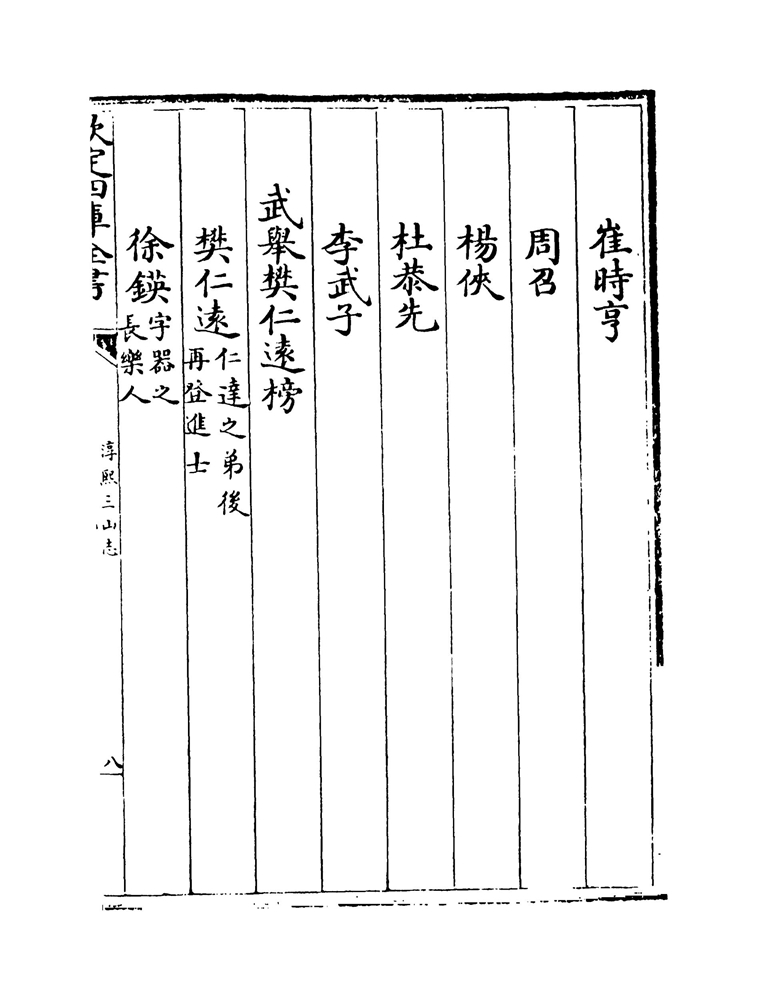 崔時亨
周召
楊俠
杜恭先
李武子
武舉樊仁遠榜
樊仁遠仁達之弟後再登進士
徐鍈字器之長樂人
欽定四庫全書
淳熙三山志
八